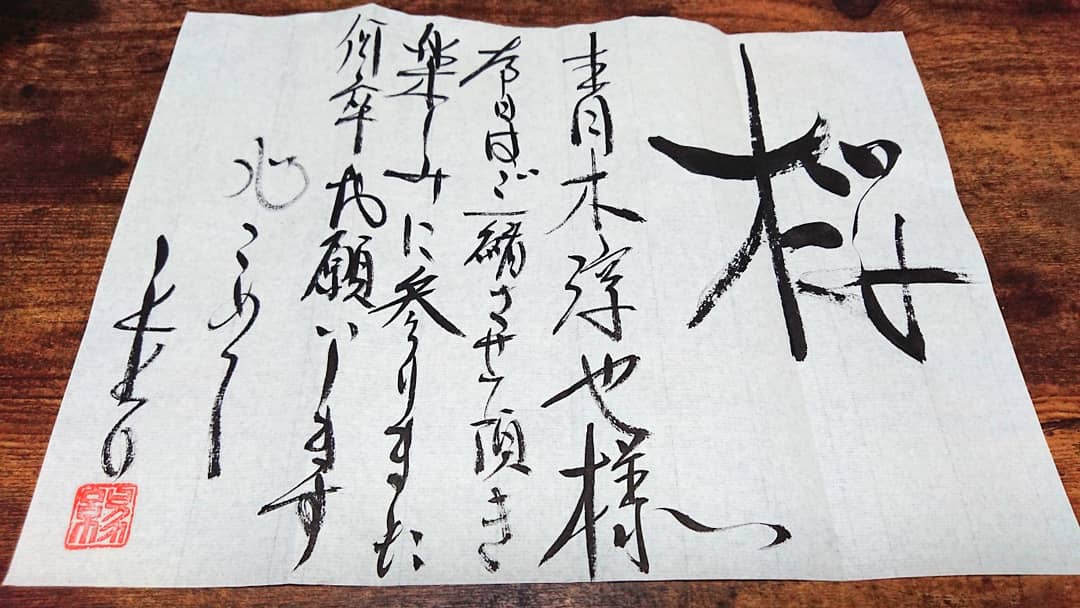 桜
青木淳也様
本日はご一緒させて頂き
楽しみに参りました
何卒お願いします
心こめ